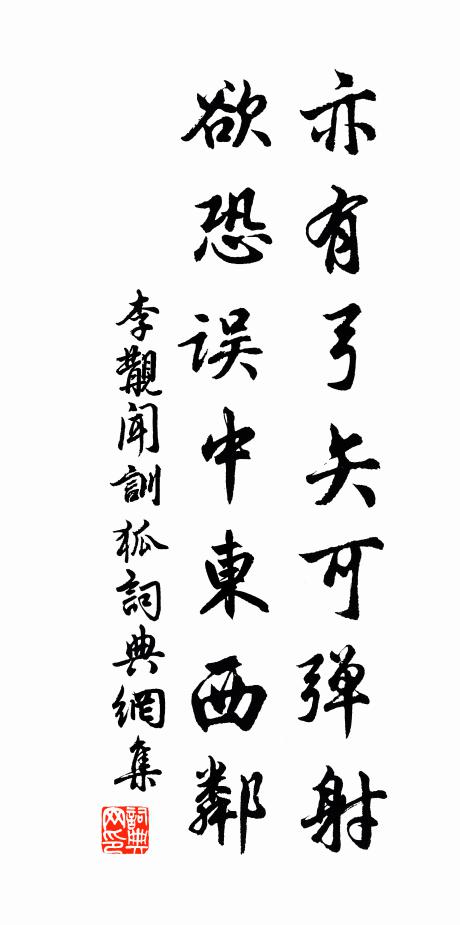 亦有弓矢可弹射
欲恐误中東西鄰
李覯聞訓狐詞典網集
詞典網印